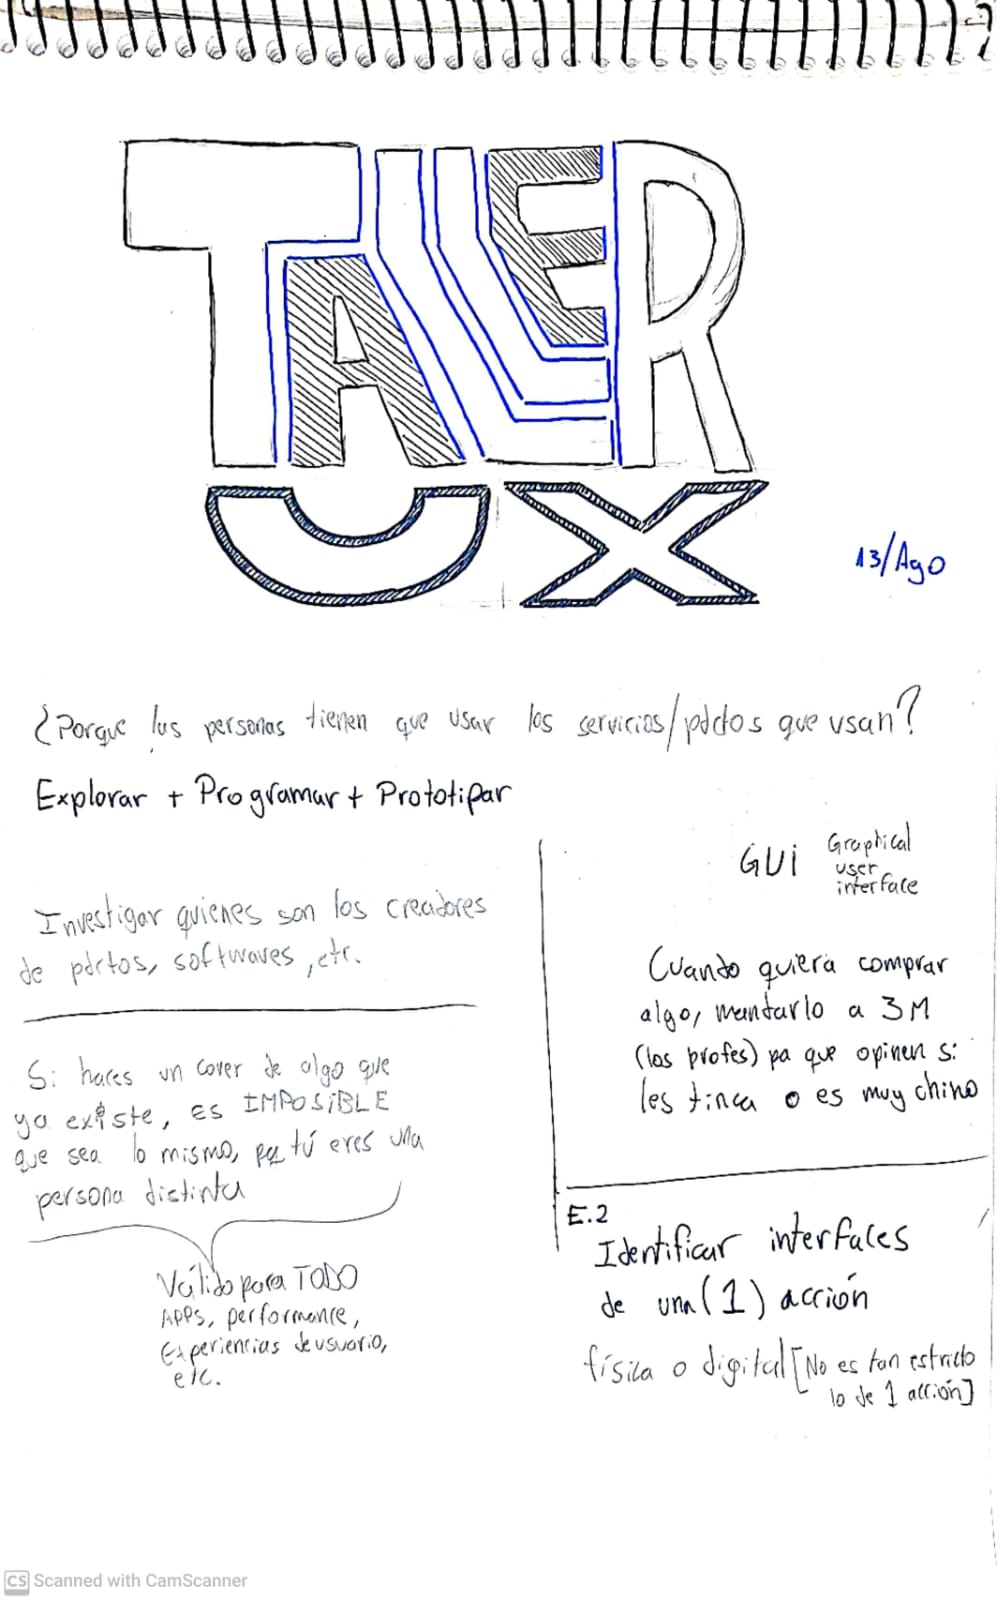 TALLER
UX
13/Ago
¿Porque las personas tienen que usar los servicios/pdctos que usan?
Explorar + Programar + Prototipar
Investigar quienes son los creadores
de pdctos, softwares, etc.
Si haces un cover de algo que
ya existe, ES IMPOSIBLE
que sea lo mismo, pq tú eres una
persona distinta
Válido para TODO
APPS, performance,
Experiencias de usuario,
etc.
GUi Graphical
user
interface
Cuando quiera comprar
algo, mandarlo a 3M
(los profes) pa que opinen si
les tinca o es muy chino
E.2
Identificar interfaces
de una (1) acción
física o digital [No es tan estricto
lo de 1 acción]
CS Scanned with CamScanner